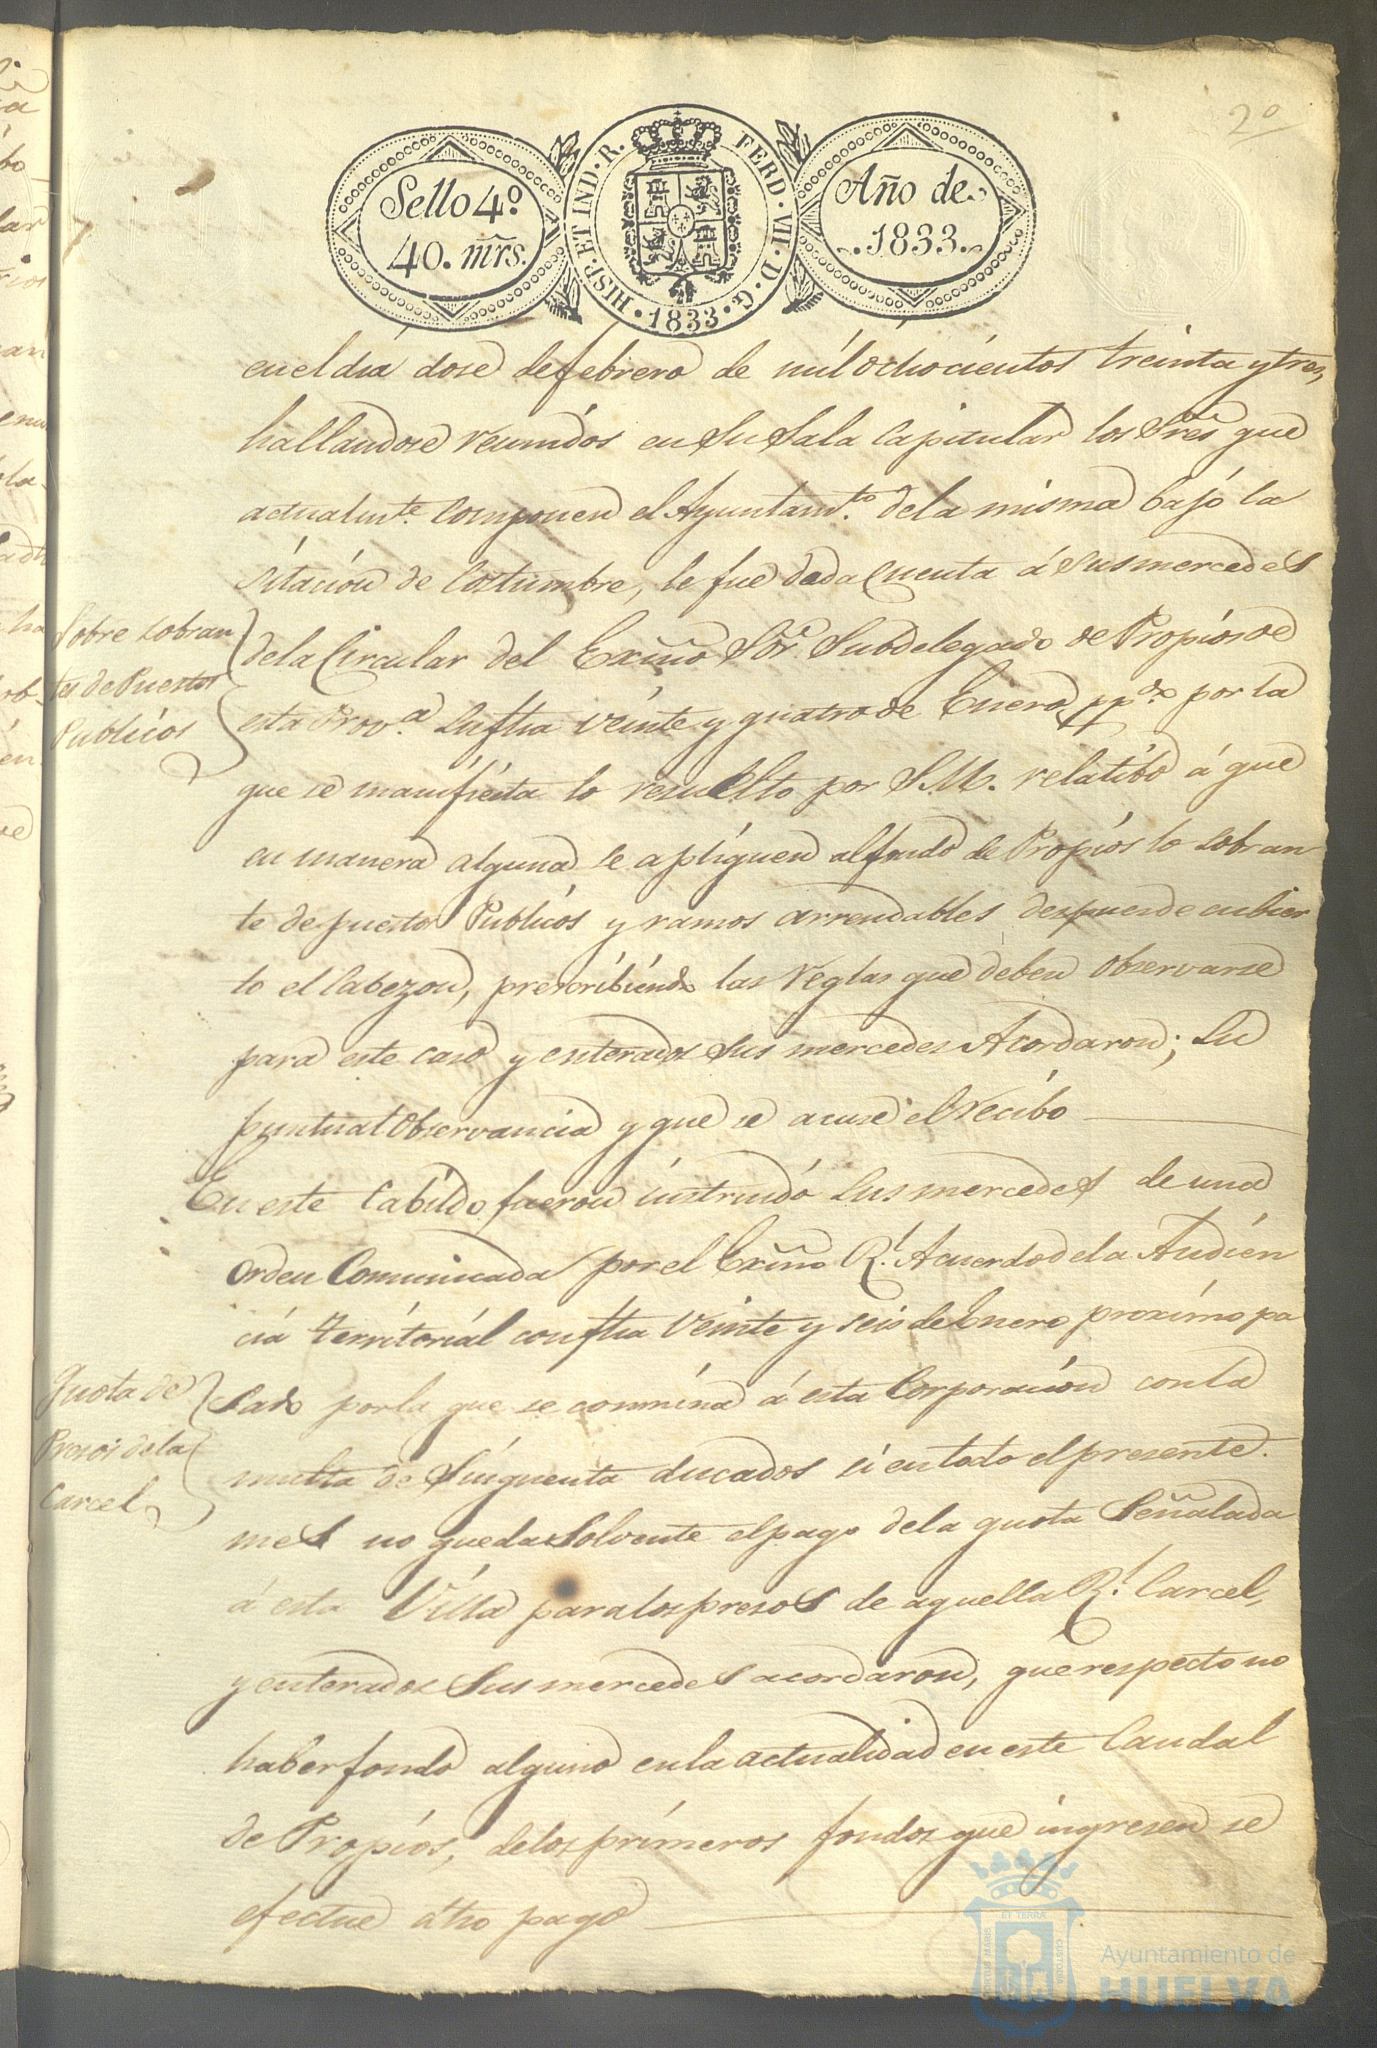 2º
Sello 4º
40. mrs.
HISP. ET IND. R. FERD. VII. D. G. 1833.
Año de
1833.
en el dia dose de febrero de mil ochocientos treinta y tres,
hallandose reunidos en su Sala Capitular los Sres que
actualmte. componen el Ayuntamto. dela misma bajo la
sitacion de costumbre, le fue dada cuenta á sus mercedes
Sobre sobran
tes de Puestos
Publicos
dela Circular del Exmo Sor. Subdelegado de Propios de
esta Prova. su fha veinte y quatro de Enero ppdo. por la
que se manifiesta lo resuelto por S.M. relatibo á que
en manera alguna se apliquen al fondo de Propios lo sobran
te de puestos Publicos y ramos arrendables despues de cubier
to el Cabezon, prescribiendo las reglas que deben observarse
para este caso y enterados sus mercedes Acordaron; su
puntual observancia y que se acuse el recibo
En este Cabildo fueron instruido sus mercedes de una
orden Comunicada por el Exmo Rl. Acuerdo dela Audien
cia territorial con fha veinte y seis de Enero proximo pa
Quota de
Presos dela
Carcel
sado por la que se conmina á esta Corporacion con la
multa de sinquenta ducados si en todo el presente
mes no queda solvente el pago dela quota señalada
á esta Villa para los presos de aquella Rl. Carcel,
y enterados sus mercedes acordaron, que respecto no
haber fondo alguno en la actualidad en este Caudal
de Propios, delos primeros fondos que ingresen se
efectue dho pago
Ayuntamiento de
HUELVA